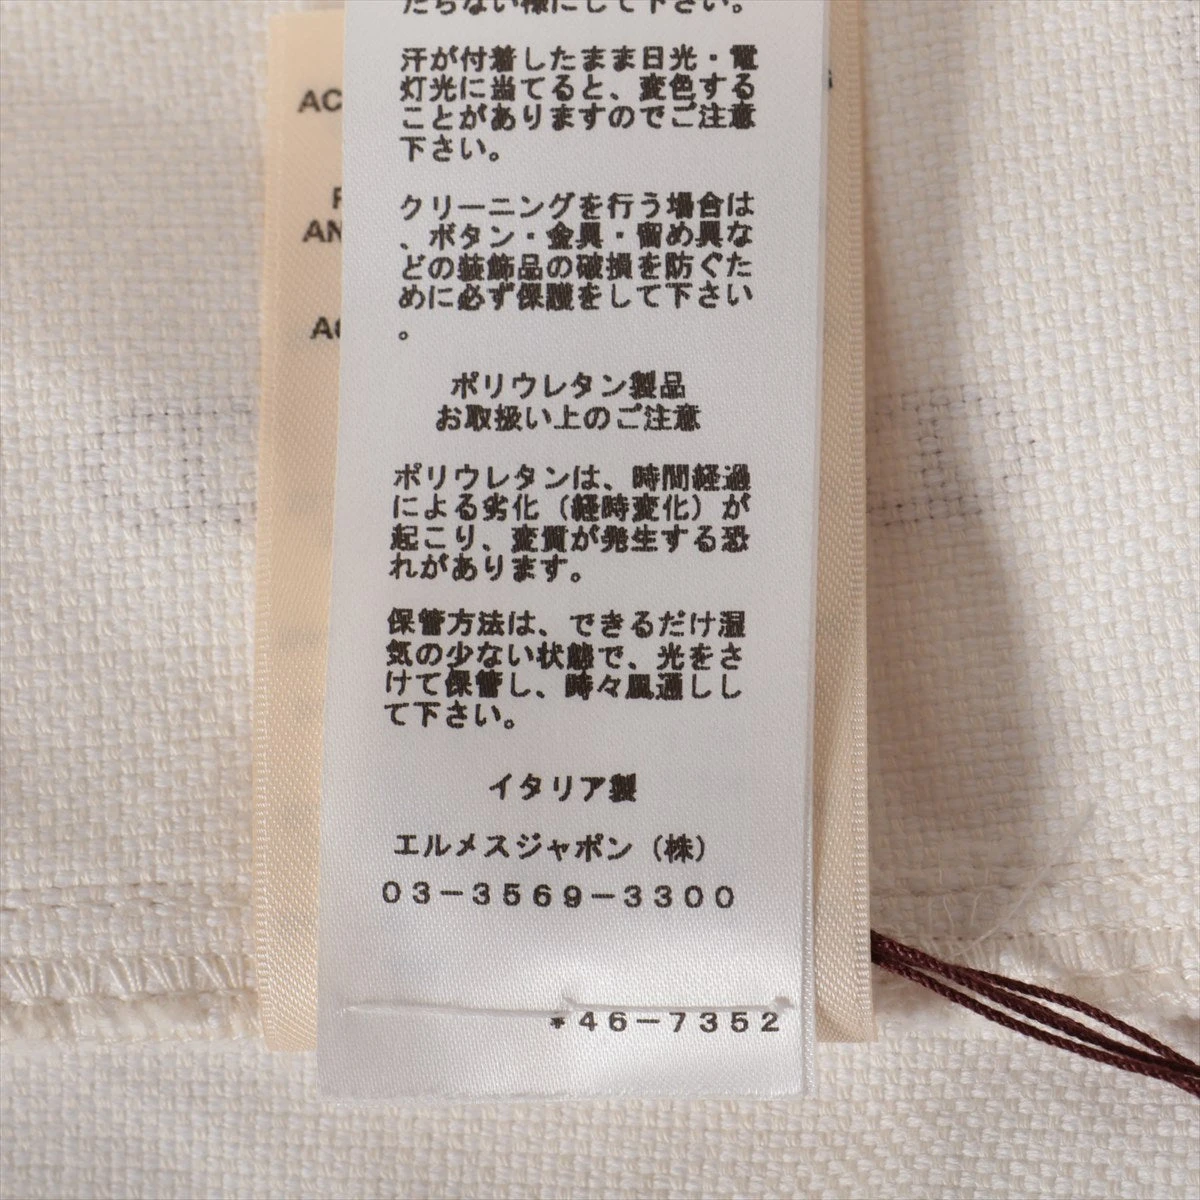 たらない様にして下さい。
汗が付着したまま日光・電
灯光に当てると、変色する
ことがありますのでご注意
下さい。
クリーニングを行う場合は
、ボタン・金具・留め具な
どの装飾品の破損を防ぐた
めに必ず保護をして下さい
。
ポリウレタン製品
お取扱い上のご注意
ポリウレタンは、時間経過
による劣化（経時変化）が
起こり、変質が発生する恐
れがあります。
保管方法は、できるだけ湿
気の少ない状態で、光をさ
けて保管し、時々風通しし
て下さい。
イタリア製
エルメスジャポン（株）
03-3569-3300
*46-7352
AC
AN